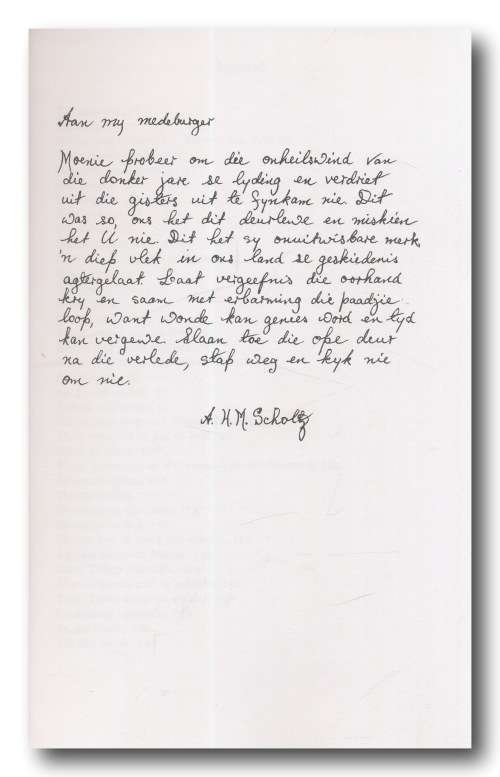 Aan my medeburger
Moenie probeer om die onheilswind van
die donker jare se lyding en verdriet
uit die gisters uit te fynkam nie. Dit
was so, ons het dit deurlewe en miskien
het U nie. Dit het sy onuitwisbare merk,
'n diep vlek in ons land se geskiedenis
agtergelaat. Laat vergeefnis die oorhand
kry en saam met erbarming die paadjie
loop, want wonde kan genees word en tyd
kan vergewe. Slaan toe die ope deur
na die verlede, stap weg en kyk nie
om nie.
A. H. M. Scholtz